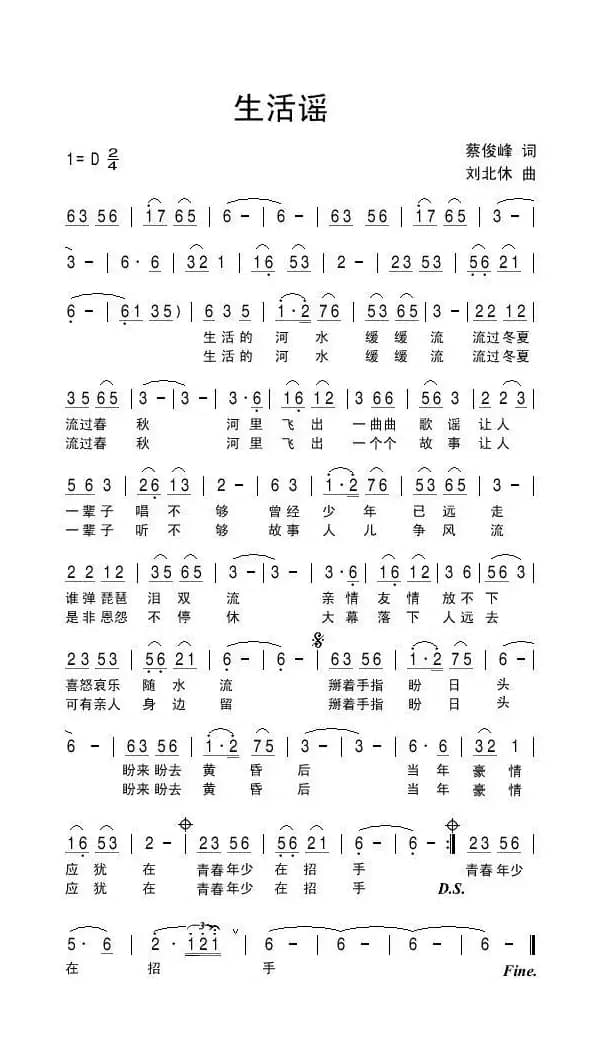 生活谣
1= D 2/4
蔡俊峰 词
刘北休 曲
63 56 | 17 65 | 6 - | 6 - | 63 56 | 17 65 | 3 - |
3 - | 6 · 6 | 32 1 | 16 53 | 2 - | 23 53 | 56 21 |
6 - | 61 35) | 6 3 5 | 1 · 2 76 | 53 65 | 3 - | 22 12 |
生活的 河 水 缓 缓 流 流过冬夏
生活的 河 水 缓 缓 流 流过冬夏
35 65 | 3 - | 3 - | 3 · 6 | 16 12 | 3 66 | 56 3 | 2 23 |
流过春 秋 河 里 飞 出 一曲曲 歌 谣 让人
流过春 秋 河 里 飞 出 一个个 故 事 让人
5 6 3 | 26 13 | 2 - | 6 3 | 1 · 2 76 | 53 65 | 3 - |
一辈子 唱 不 够 曾经 少 年 已 远 走
一辈子 听 不 够 故事 人 儿 争 风 流
2 2 12 | 35 65 | 3 - | 3 - | 3 · 6 | 16 12 | 3 6 | 56 3 |
谁弹琵琶 泪 双 流 亲 情 友 情 放 不 下
是非恩怨 不 停 休 大 幕 落 下 人 远 去
23 53 | 56 21 | 6 - | 6 - | 63 56 | 1 · 2 75 | 6 - |
喜怒哀乐 随 水 流 掰着手指 盼 日 头
可有亲人 身 边 留 掰着手指 盼 日 头
6 - | 63 56 | 1 · 2 75 | 3 - | 3 - | 6 · 6 | 32 1 |
盼来盼去 黄 昏 后 当 年 豪 情
盼来盼去 黄 昏 后 当 年 豪 情
16 53 | 2 - | 23 56 | 56 21 | 6 - | 6 - :| 23 56 |
应 犹 在 青春年少 在 招 手 青春年少
应 犹 在 青春年少 在 招 手 D.S.
5 · 6 | 2 · 121 | 6 - | 6 - | 6 - | 6 - ‖
3
在 招 手 Fine.